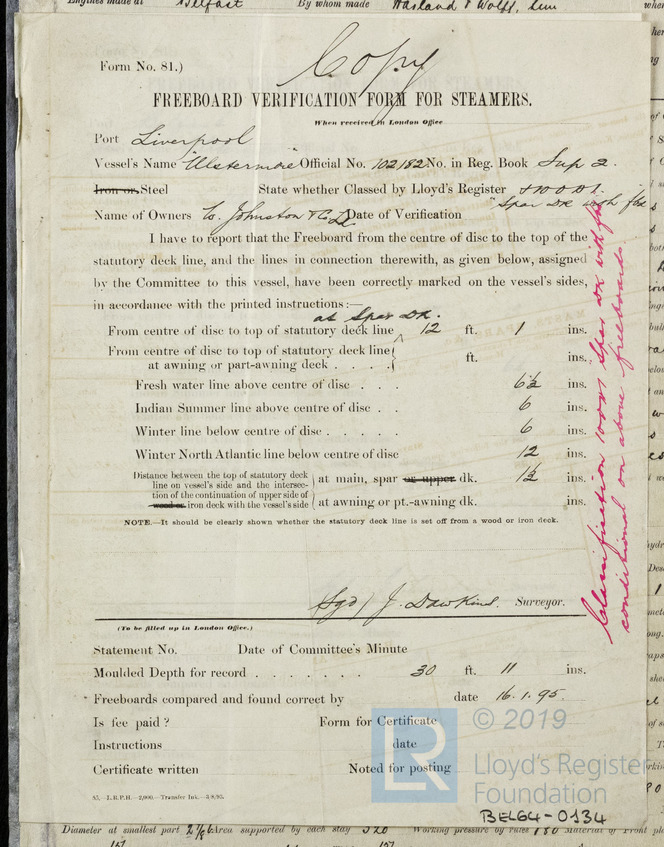 Engines made at Belfast By whom made Harland & Wolff, Lim
Copy
Form No. 81.)
FREEBOARD VERIFICATION FORM FOR STEAMERS.
When received in London Office
Port Liverpool
Vessel's Name "Ulstermore" Official No. 102182 No. in Reg. Book Sup 2.
Iron or Steel State whether Classed by Lloyd's Register +100A1.
"Spar Dk with fbd
Name of Owners W. Johnston & Co Ld Date of Verification
I have to report that the Freeboard from the centre of disc to the top of the
statutory deck line, and the lines in connection therewith, as given below, assigned
by the Committee to this vessel, have been correctly marked on the vessel's sides,
in accordance with the printed instructions:—
at Spar Dk.
From centre of disc to top of statutory deck line 12 ft. 1 ins.
From centre of disc to top of statutory deck line
at awning or part-awning deck . . . . ft. ins.
Fresh water line above centre of disc . . . 6½ ins.
Indian Summer line above centre of disc . . 6 ins.
Winter line below centre of disc . . . . . 6 ins.
Winter North Atlantic line below centre of disc 12 ins.
Distance between the top of statutory deck
line on vessel's side and the intersec-
tion of the continuation of upper side of
wood or iron deck with the vessel's side
at main, spar or upper dk. 1½ ins.
at awning or pt.-awning dk. ins.
NOTE.—It should be clearly shown whether the statutory deck line is set off from a wood or iron deck.
Sgd/ J. Dawkins. Surveyor.
(To be filled up in London Office.)
Statement No. Date of Committee's Minute
Moulded Depth for record . . . . . . . 30 ft. 11 ins.
Freeboards compared and found correct by date 16.1.95.
Is fee paid ? Form for Certificate
Instructions date
Certificate written Noted for posting
85.—L.R.P.H.—2,000.—Transfer Ink.—3,8,95.
Classification 100A1 "Spar Dk with fbd
conditional on above freeboards
© 2019
LR
Lloyd's Register
Foundation
BEL64-0134
Diameter at smallest part Area supported by each stay 320 Working pressure by rules 180 Material of Front pla